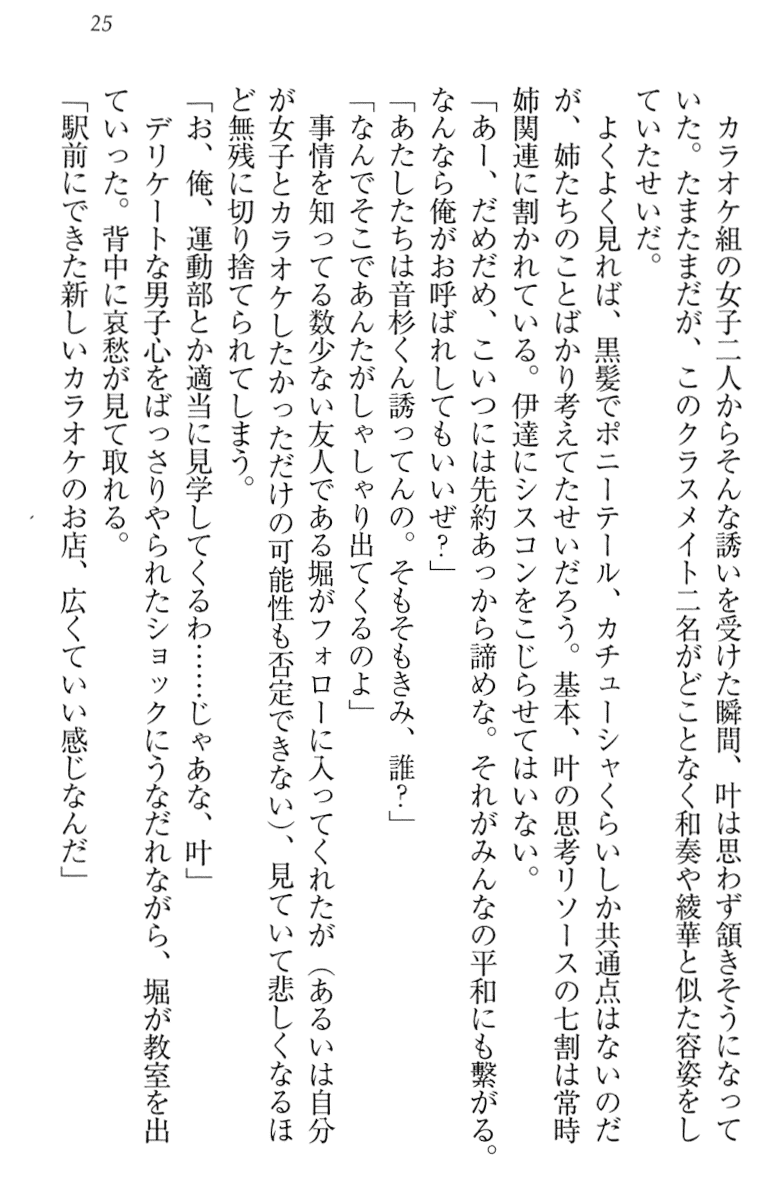 25
カラオケ組の女子二人からそんな誘いを受けた瞬間、叶は思わず頷きそうになって
いた。たまたまだが、このクラスメイト二名がどことなく和奏や綾華と似た容姿をし
ていたせいだ。
よくよく見れば、黒髪でポニーテール、カチューシャくらいしか共通点はないのだ
が、姉たちのことばかり考えてたせいだろう。基本、叶の思考リソースの七割は常時
姉関連に割かれている。伊達にシスコンをこじらせてはいない。
「あー、だめだめ、こいつには先約あっから諦めな。それがみんなの平和にも繋がる。
なんなら俺がお呼ばれしてもいいぜ?」
「あたしたちは音杉くん誘ってんの。そもそもきみ、誰?」
「なんでそこであんたがしゃしゃり出てくるのよ」
事情を知ってる数少ない友人である堀がフォローに入ってくれたが(あるいは自分
が女子とカラオケしたかっただけの可能性も否定できない)、見ていて悲しくなるほ
ど無残に切り捨てられてしまう。
「お、俺、運動部とか適当に見学してくるわ……じゃあな、叶」
デリケートな男子心をばっさりやられたショックにうなだれながら、堀が教室を出
ていった。背中に哀愁が見て取れる。
「駅前にできた新しいカラオケのお店、広くていい感じなんだ」